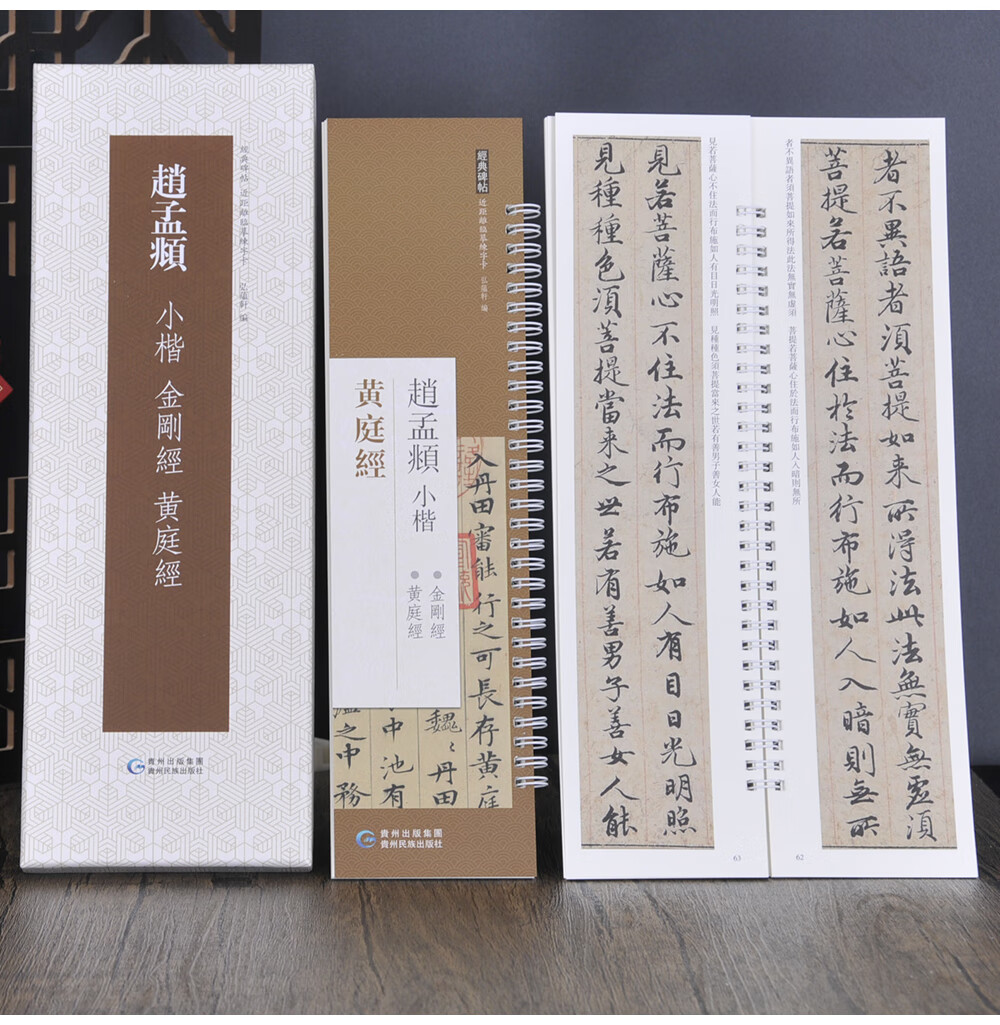 趙孟頫 小楷 金剛經 黃庭經
經典碑帖 近距離臨摹練字卡 弘蘊軒 編
貴州出版集團
貴州民族出版社
經典碑帖 近距離臨摹練字卡 弘蘊軒 編
趙孟頫 小楷
金剛經
黃庭經
黄庭經
入丹田審能行之可長存黄庭
魏〻丹田
中池有
之中務
貴州出版集團
貴州民族出版社
者不異語者須菩提如来所得法此法無實無虛須
菩提若菩薩心住於法而行布施如人入暗則無所
者不異語者須菩提如來所得法此法無實無虛須 菩提若菩薩心住於法而行布施如人入暗則無所
62
見若菩薩心不住法而行布施如人有目日光明照
見種種色須菩提當来之世若有善男子善女人能
見若菩薩心不住法而行布施如人有目日光明照 見種種色須菩提當來之世若有善男子善女人能
63